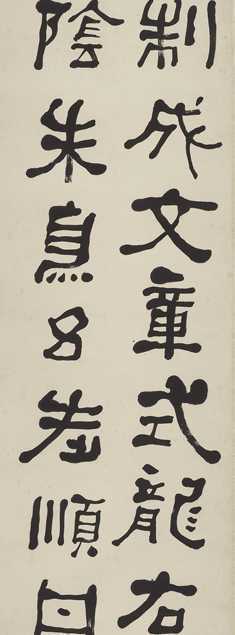 制成文章式龍右
陰朱鳥㠯差順日